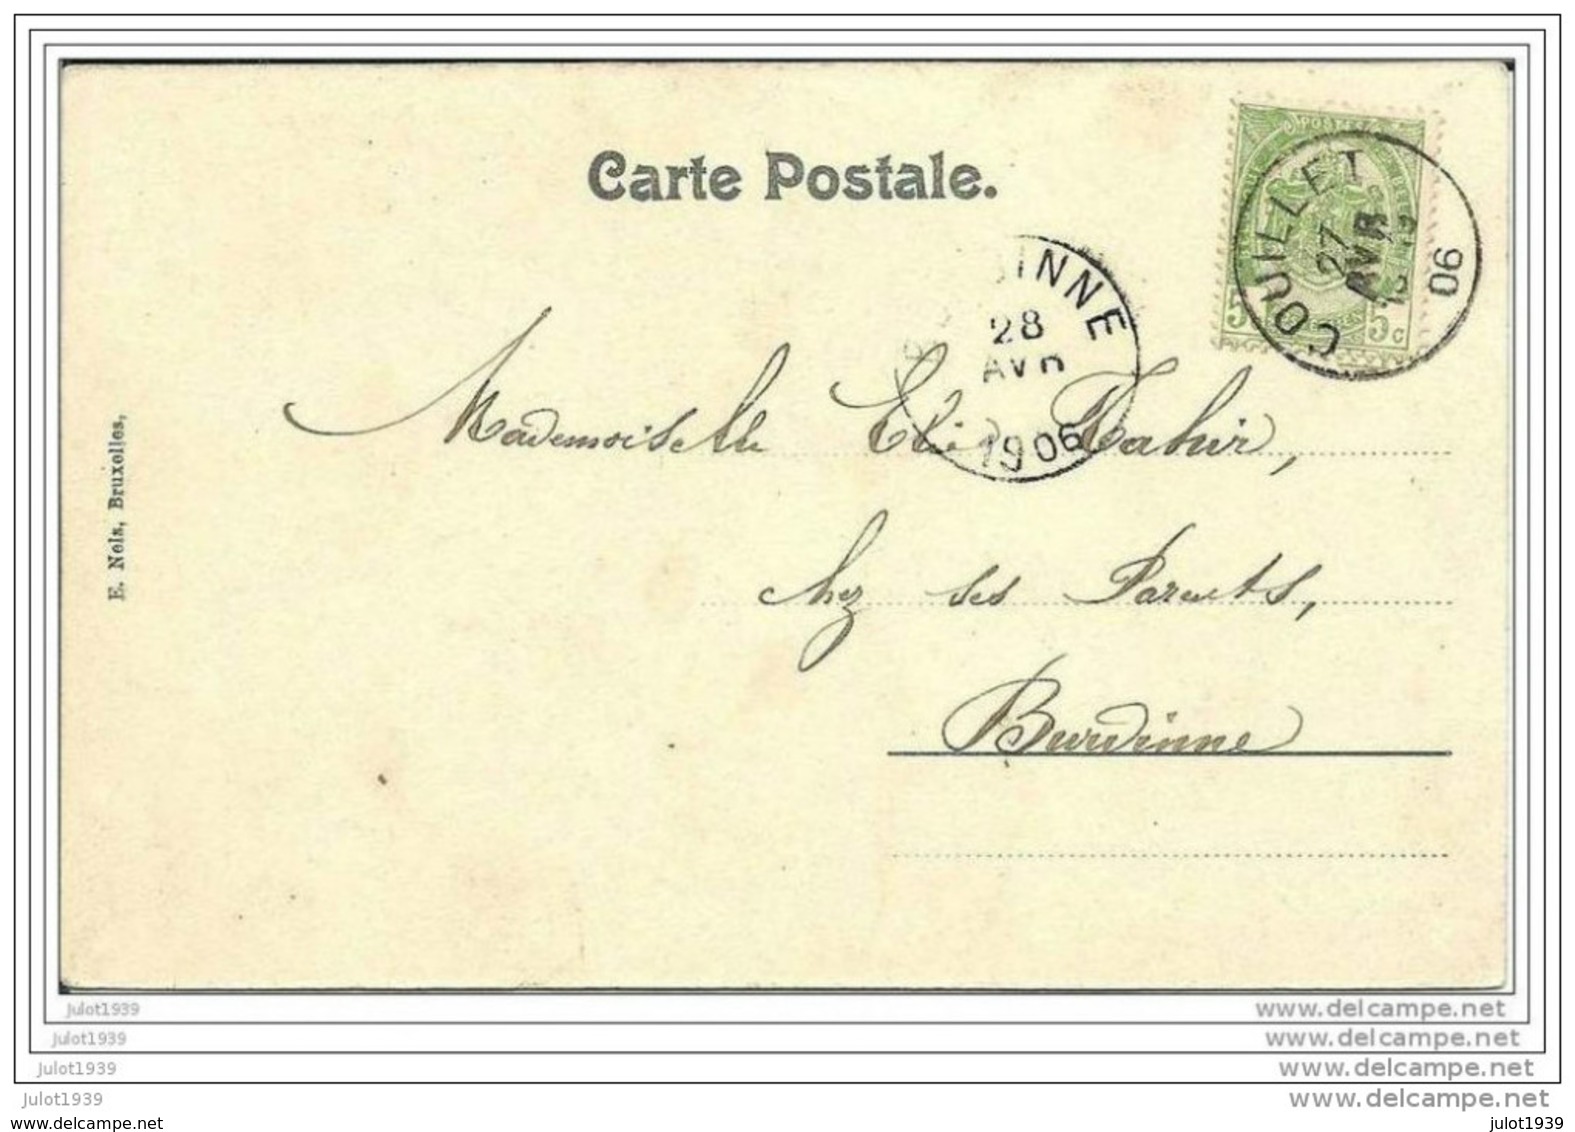 Carte Postale.
POSTES
5 5c
COUILLET
27
AVR
06
28
AVR
1906
Mademoiselle Tahir,
chez ses Parents,
Burdinne
E. Nels, Bruxelles,
julot1939 www.delcampe.net
julot1939 www.delcampe.net
julot1939 www.delcampe.net
julot1939 www.delcampe.net
www.delcampe.net julot1939